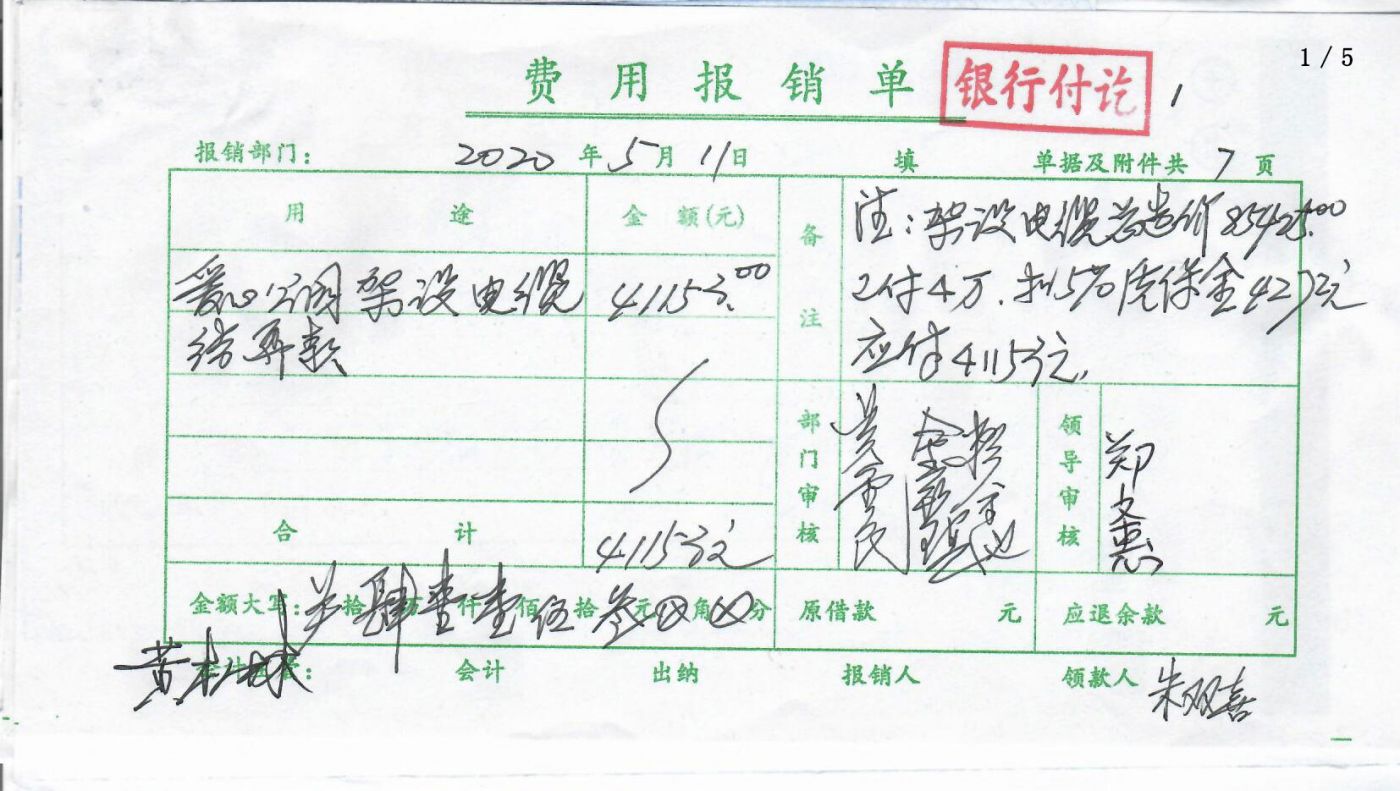 1 / 5
费用报销单 银行付讫 1
报销部门： 2020 年 5 月 11 日 填 单据及附件共 7 页
用途 金额(元) 备注
注：架设电缆总造价 85425.00
已付4万．扣5%质保金4272元
应付41153元．
爱心公园架设电缆 41153.00
结算款
部门审核 领导审核 郑文惠
合计 41153元
金额大写： 拾肆万壹仟壹佰伍拾叁元⊗角⊗分 原借款 元 应退余款 元
会计 出纳 报销人 领款人 朱双喜